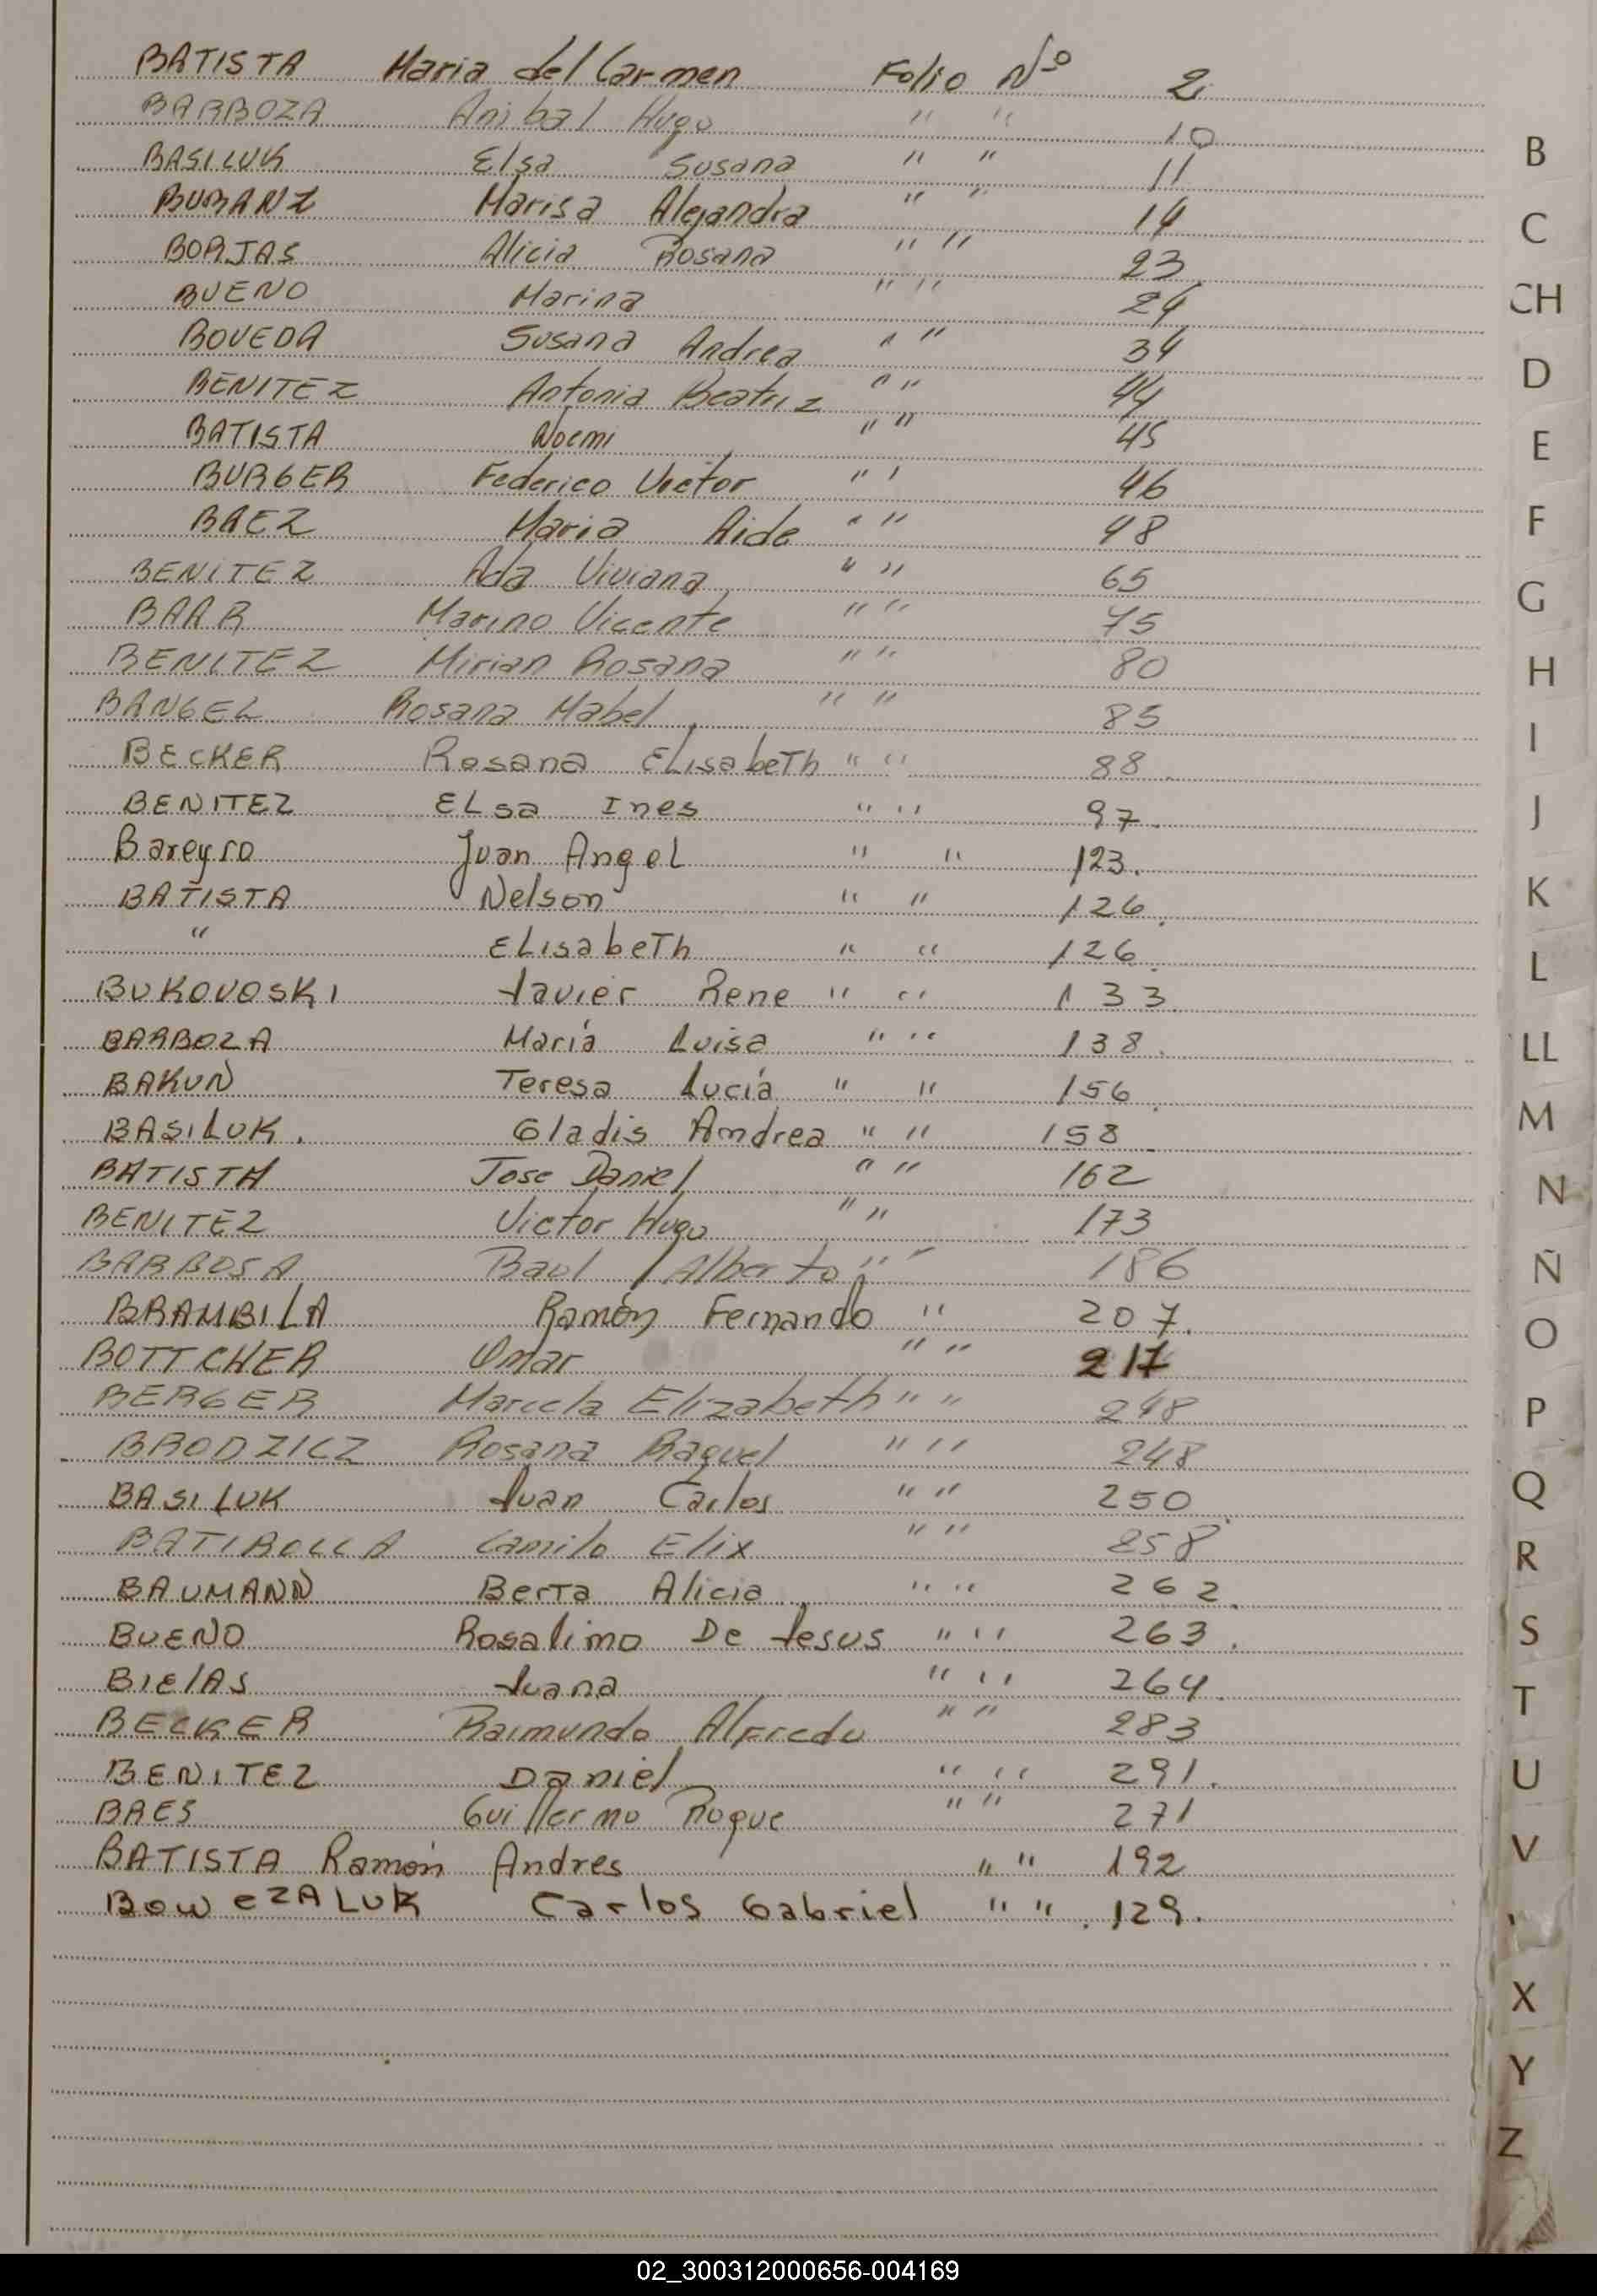 BATISTA Maria del Carmen Folio Nº 2
BARBOZA Anibal Hugo " " 10
BASILUK Elsa Susana " " 11
BUBANZ Marisa Alejandra " " 14
BORJAS Alicia Rosana " " 23
BUENO Marina " " 24
BOVEDA Susana Andrea " " 34
BENITEZ Antonia Beatriz " " 44
BATISTA Noemi " " 45
BURGER Federico Victor " " 46
BAEZ Maria Aide " " 48
BENITEZ Ada Viviana " " 65
BAAR Marino Vicente " " 75
BENITEZ Mirian Rosana " " 80
BANGEL Rosana Mabel " " 85
BECKER Rosana ELisabeTh " " 88
BENITEZ ELsa Ines " " 97.
Bareyro Juan AngeL " " 123.
BATISTA Nelson " " 126.
" ELisabeTh " " 126.
BUKOVOSKI Javier Rene " " 133.
BARBOZA María Luisa " " 138.
BAKUN Teresa Lucía " " 156.
BASILUK. Gladis Andrea " " 158
BATISTA Jose Daniel " " 162
BENITEZ Victor Hugo " " 173
BARBOSA Raul Alberto " " 186
BRAMBILA Ramón Fernando " 207.
BOTTCHER Omar " " 217
BERGER Marcela Elizabeth " " 248
BRODZICZ Rosana Raquel " " 248
BASILUK Juan Carlos " " 250
BATIROLLA Camilo Elix " " 258
BAUMANN BerTa Alicia " " 262.
BUENO Rosalimo De Jesus " " 263.
BIElAS Juana " " 264.
BECKER Raimundo Alfredo " " 283
BENITEZ Daniel " " 291.
BAES Guillermo Roque " " 271
BATISTA Ramón Andres " " 192
BOWeZALUK Carlos Gabriel " " . 129.
B
C
CH
D
E
F
G
H
I
J
K
L
LL
M
N
Ñ
O
P
Q
R
S
T
U
V
X
Y
Z
02_300312000656-004169